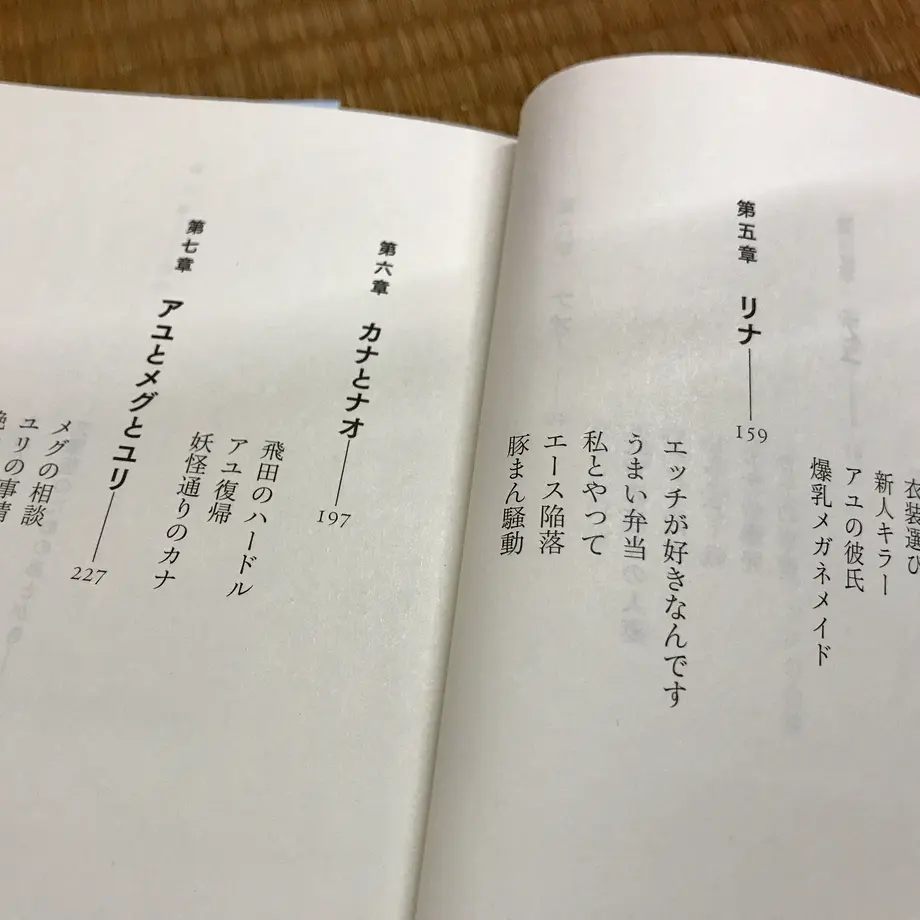 衣装選び
新人キラー
アユの彼氏
爆乳メガネメイド
第五章 リナ――159
エッチが好きなんです
うまい弁当
私とやって
エース陥落
豚まん騒動
第六章 カナとナオ――197
飛田のハードル
アユ復帰
妖怪通りのカナ
第七章 アユとメグとユリ――227
メグの相談
ユリの事情